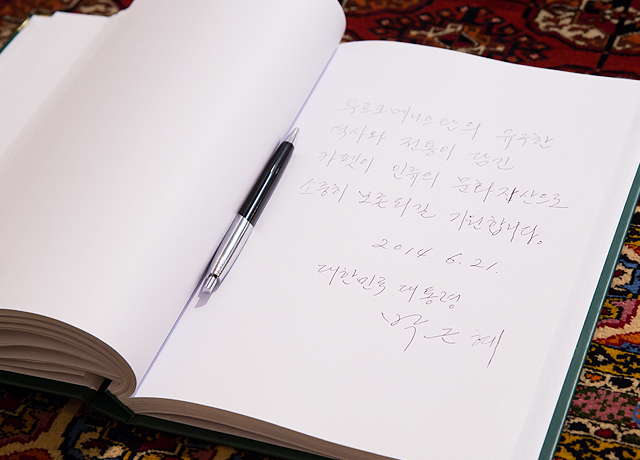 투르크메니스탄의 유구한
역사와 전통이 담긴
카펫이 인류의 문화자산으로
소중히 보존되길 기원합니다.
2014. 6. 21.
대한민국 대통령
박근혜